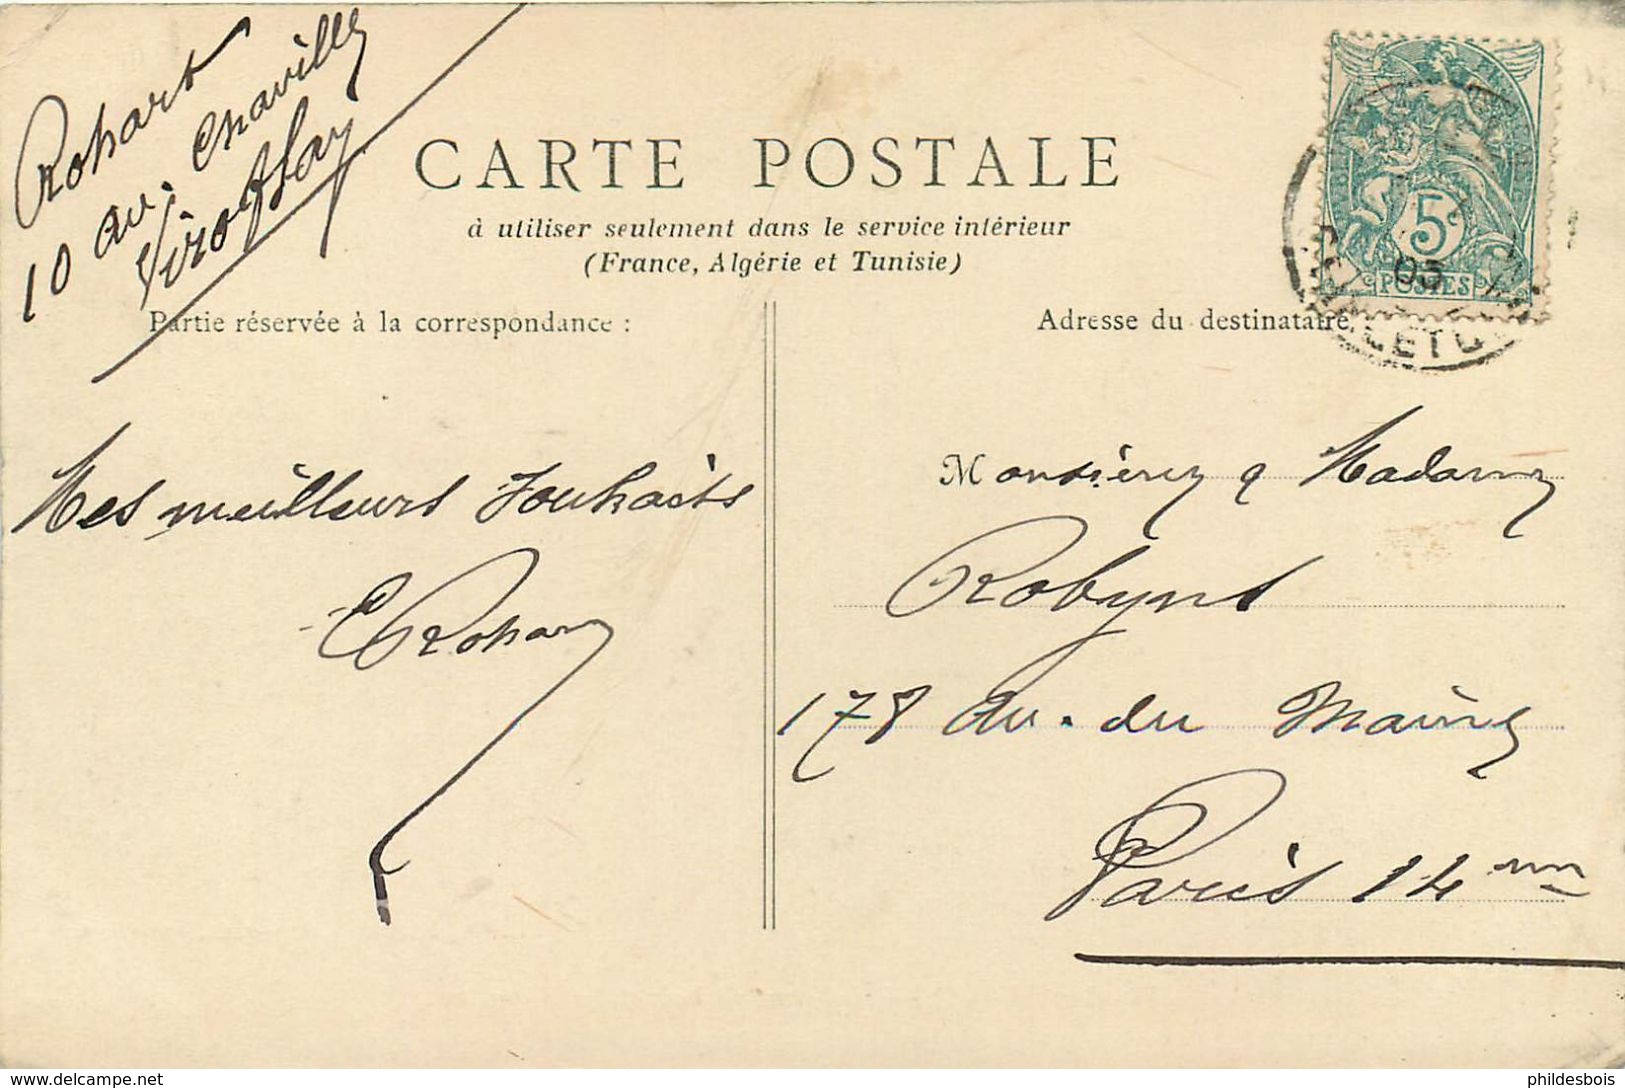 Rohart
10 av. Chaville
Viroflay
CARTE POSTALE
à utiliser seulement dans le service intérieur
(France, Algérie et Tunisie)
Partie réservée à la correspondance :
Adresse du destinataire
5c
POSTES
05
Mes meilleurs Souhaits
E Rohart
Monsieur & Madame
Robyns
178 Av. du Maine
Paris 14me
delcampe.net
phildesbois